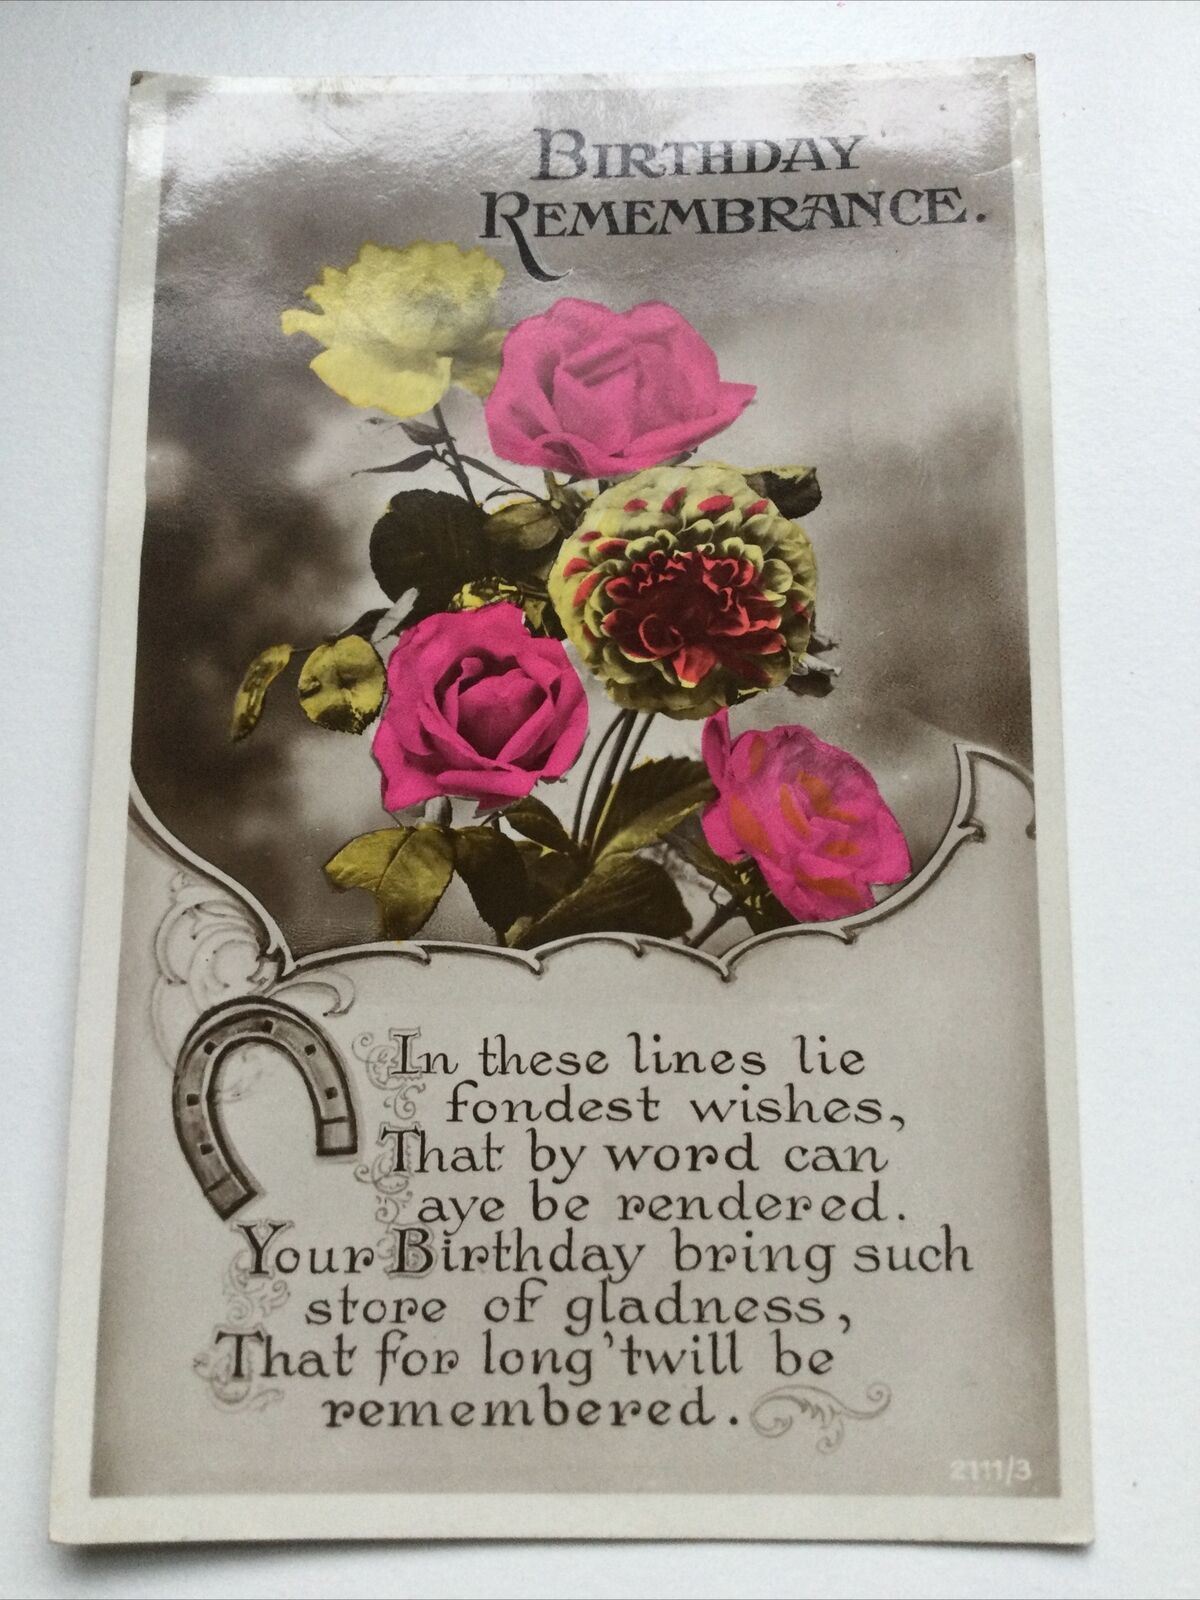 BIRTHDAY
REMEMBRANCE.
In these lines lie
fondest wishes,
That by word can
aye be rendered.
Your Birthday bring such
store of gladness,
That for long 'twill be
remembered.
2111/3